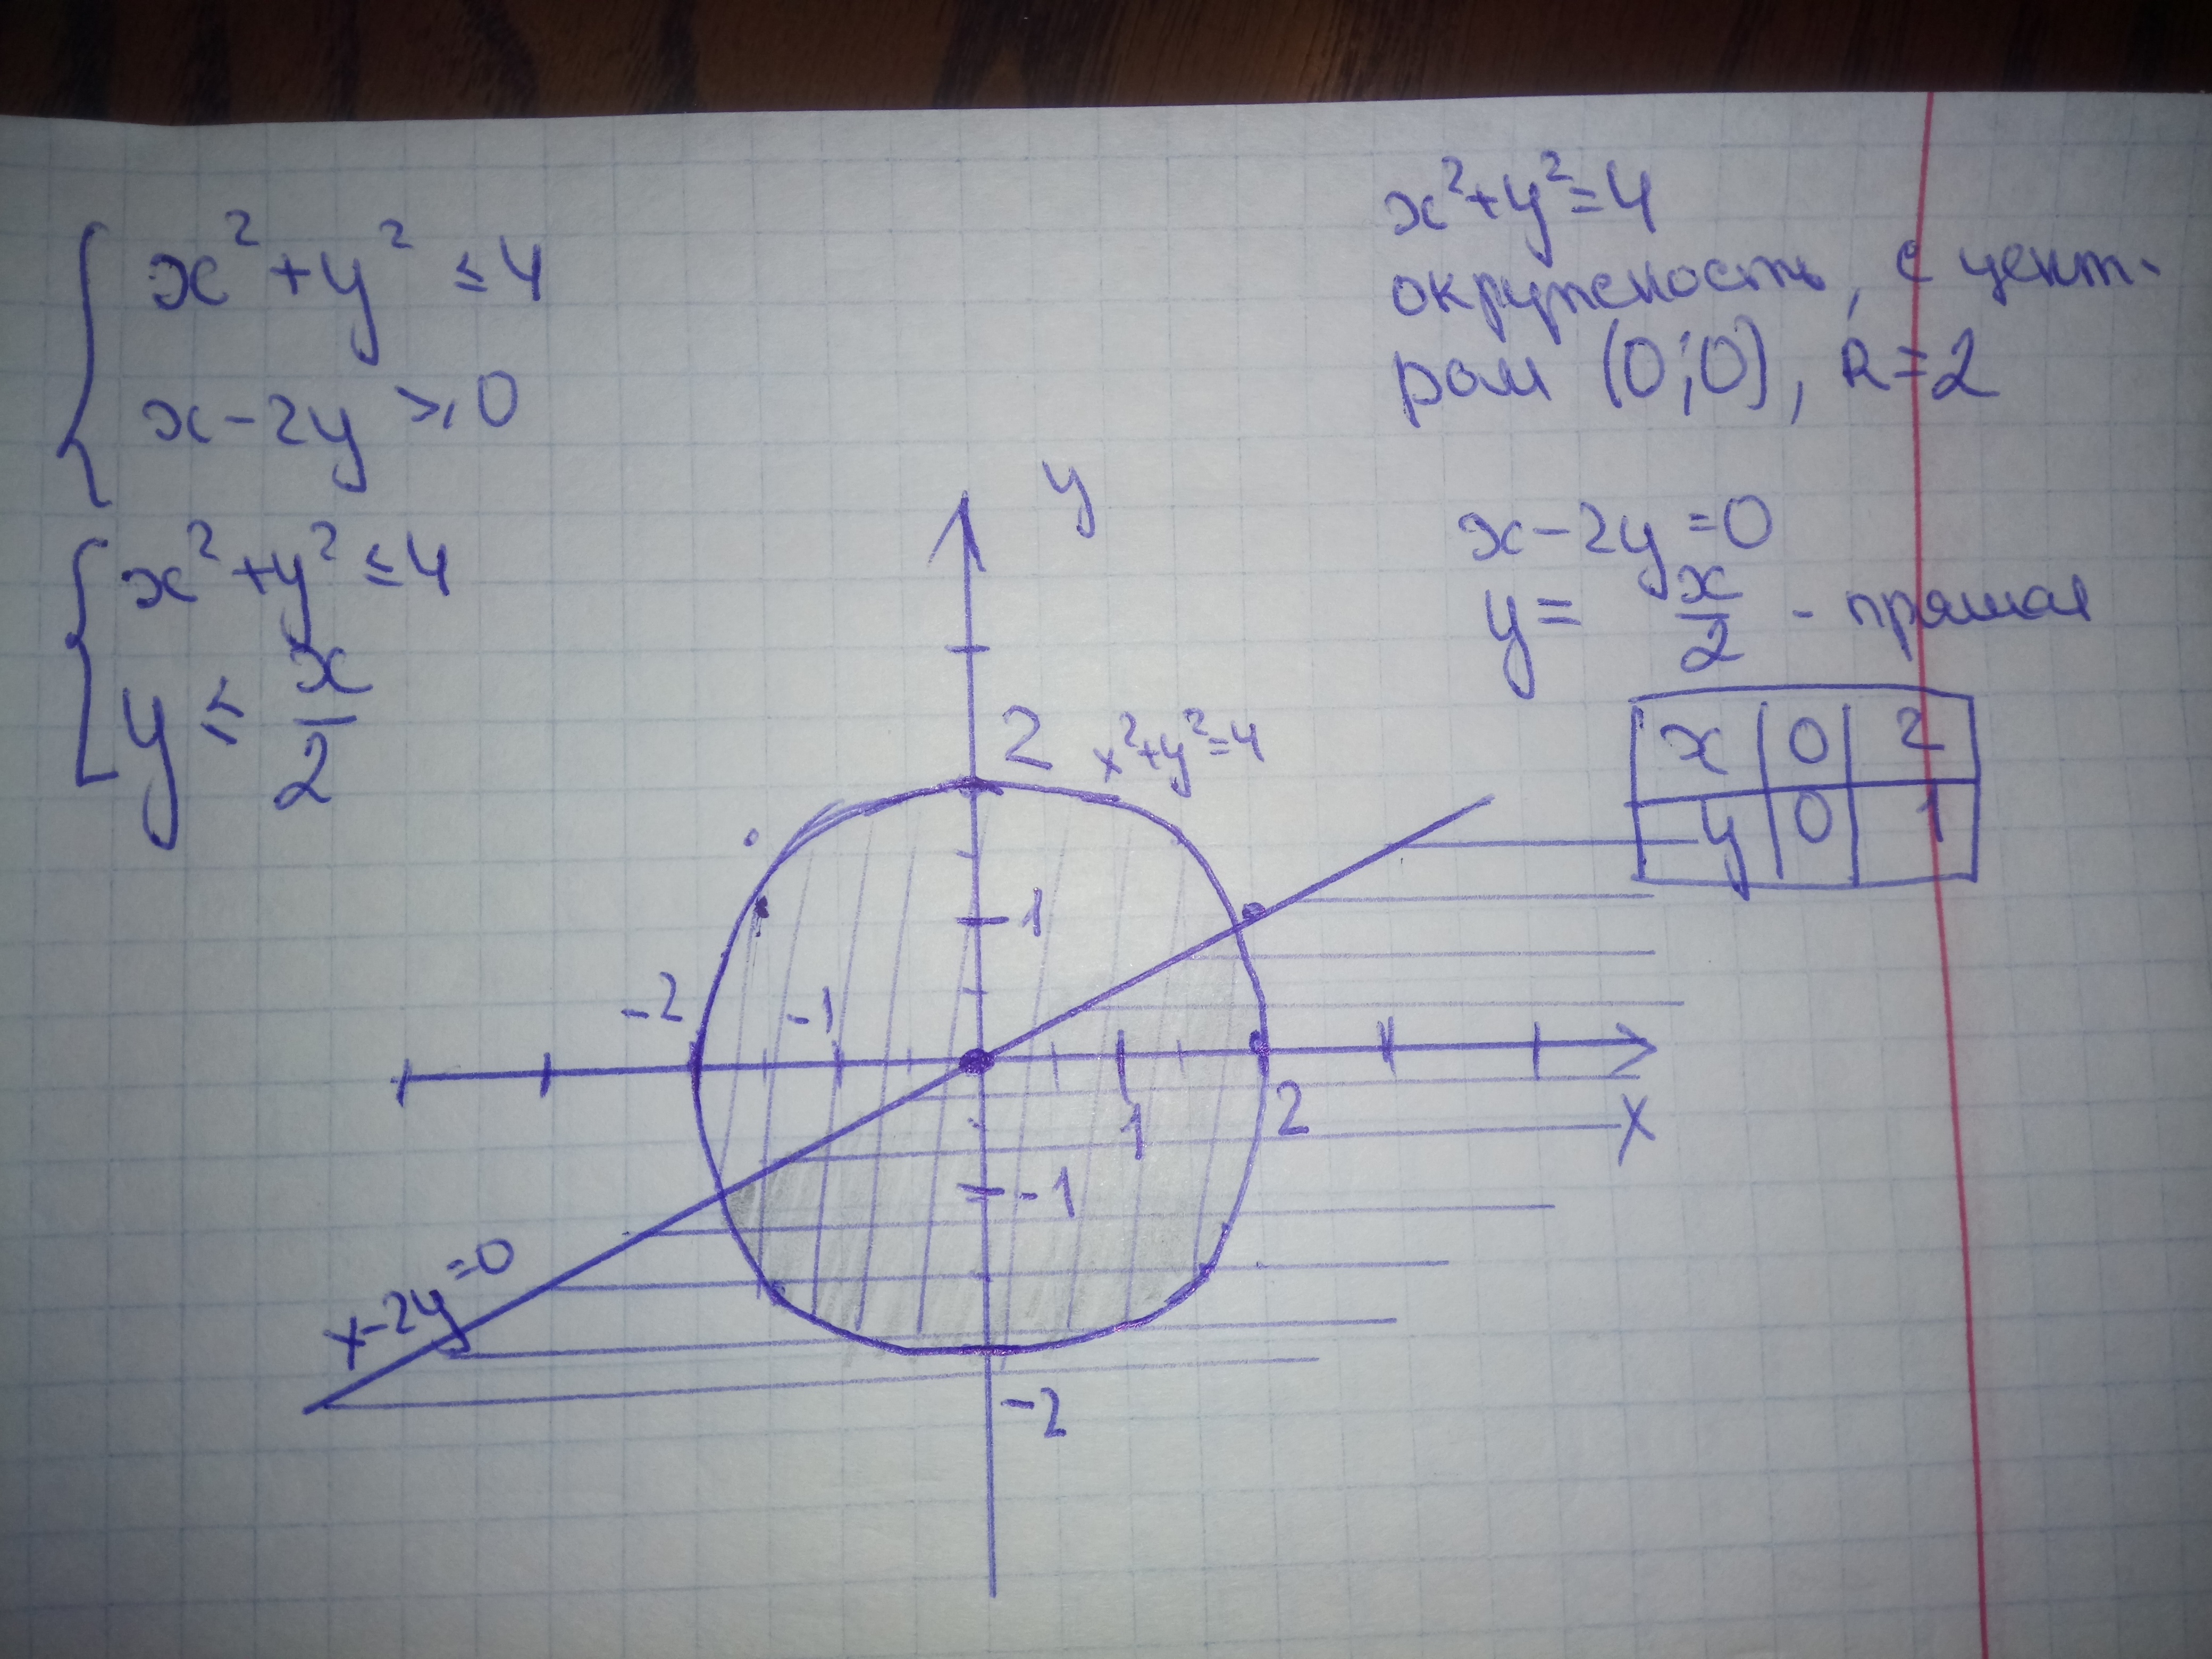 x²+y² ≤ 4
x-2y ≥ 0
x²+y² ≤ 4
y ≤ x/2
x²+y²=4
окружность, с цент-
ром (0;0), R=2
x-2y=0
y= x/2 - прямая
x 0 2
y 0 1
y
2
x²+y²=4
1
-2 -1
1 2
x
-1
x-2y=0
-2